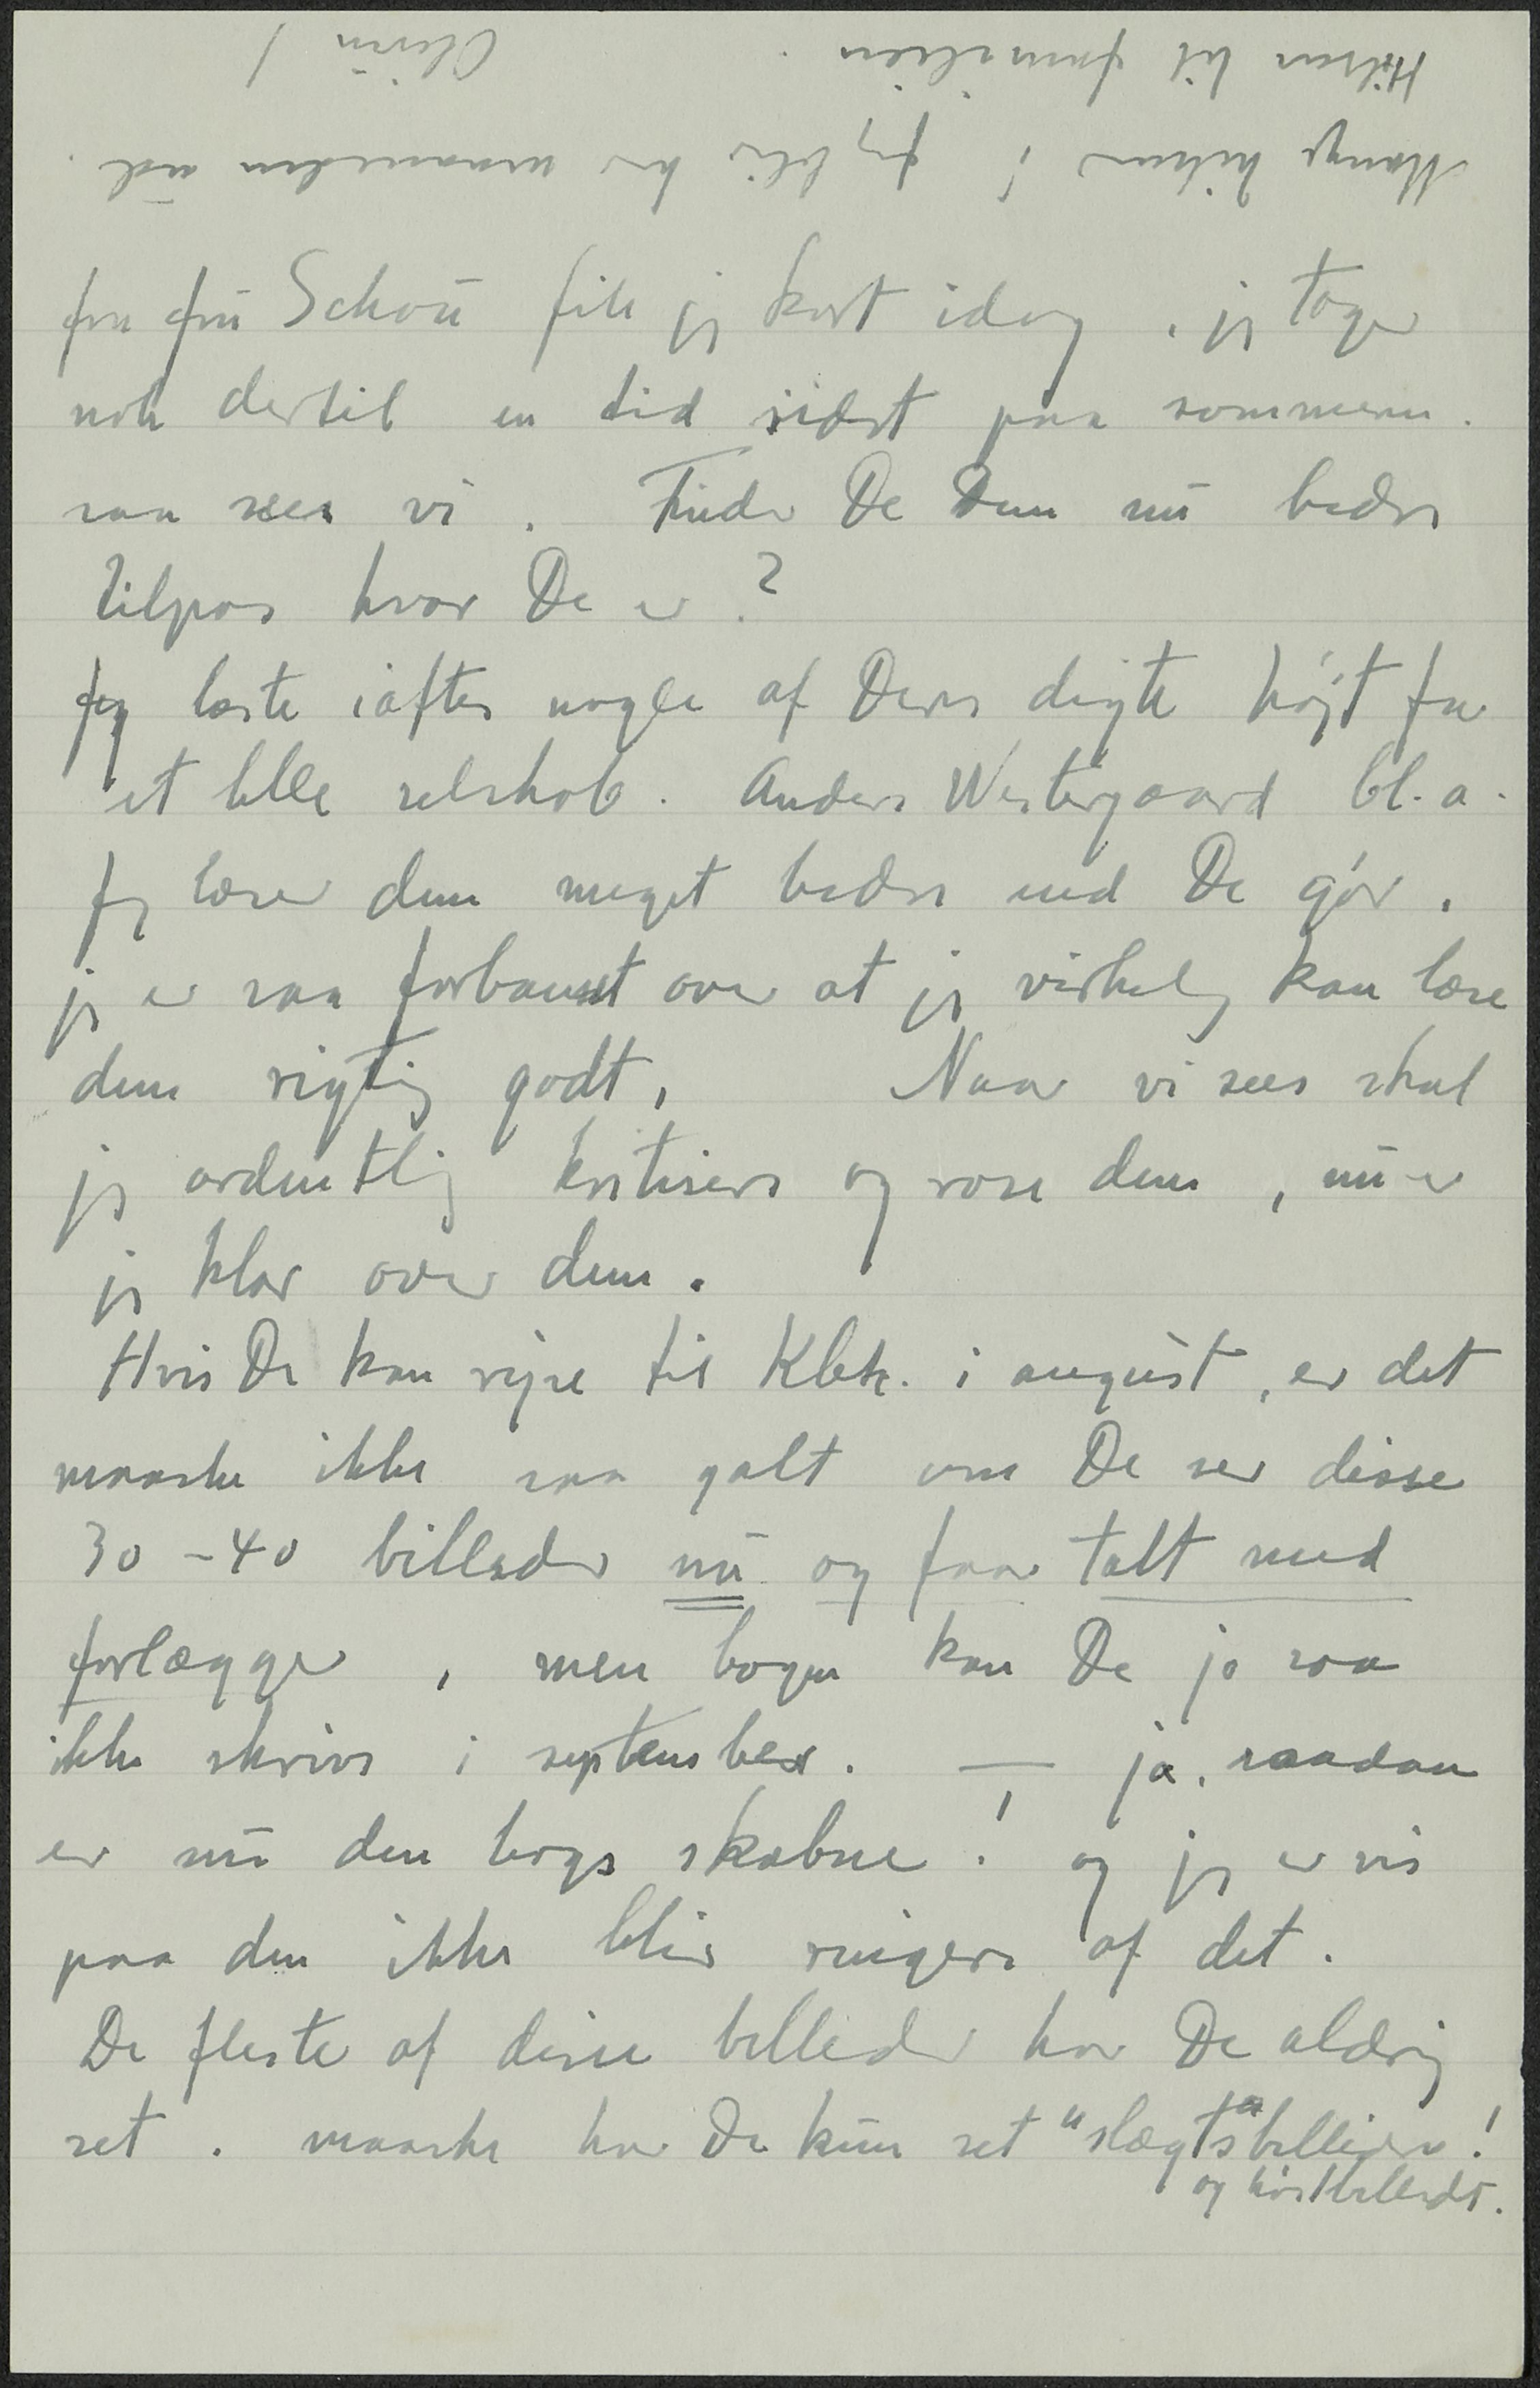 fra frú Schoú fik jeg kort idag, jeg tager
nok dertil en tid sidst paa sommeren.
saa sees vi. Finder De Dem nú bedre
tilpas hvor De er?
Jeg læste iaftes nogle af Deres digte højt for
et lille selskab. Anders Westergaard bl. a.
Jeg læser dem meget bedre end De gør.
jeg er saa forbauset over at jeg virkelig kan læse
dem rigtig godt, Naar vi sees skal
jeg ordentlig kritisere og rose dem, nú er
jeg klar over dem.
Hvis De kan rejse til Kbh. i august, er det
maaske ikke saa galt om De ser disse
30-40 billeder nú og faar talt med
forlægger, men bogen kan De jo saa
ikke skrive i september. — ja, saadan
er nú den bogs skæbne! og jeg er vis
paa den ikke blir ringere af det.
De fleste af disse billeder har De aldrig
set. maaske har De kún set "slægts"billeder!
og høstbilledet.
Mange hilsner! Jeg blir her maaneden úd.
Hilsen til familien.
Oluf